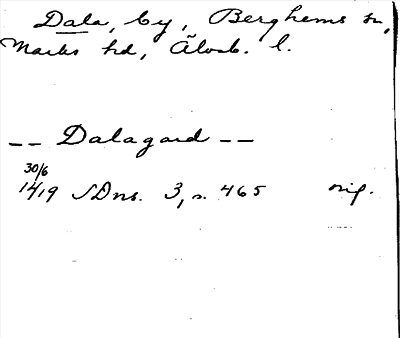 Dala, by, Berghems sn,
Marks hd, Älvsb. l.
-- Dalagard --
30/6
1419 SDns. 3, s. 465 orig.